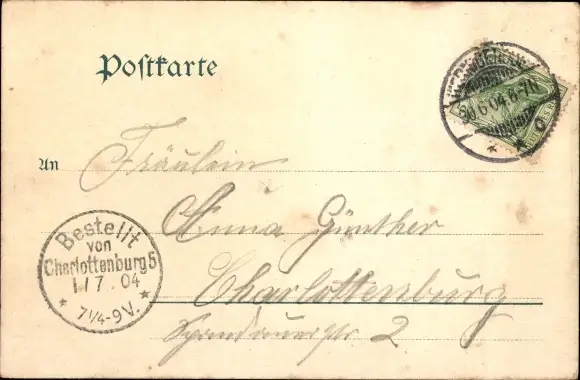 Postkarte
30.6.04.6-7N
An
Fräulein
Anna Günther
Charlottenburg
Spandauerstr. 2
Bestellt
von
Charlottenburg 5
1/7.04
* 7¼-9V. *